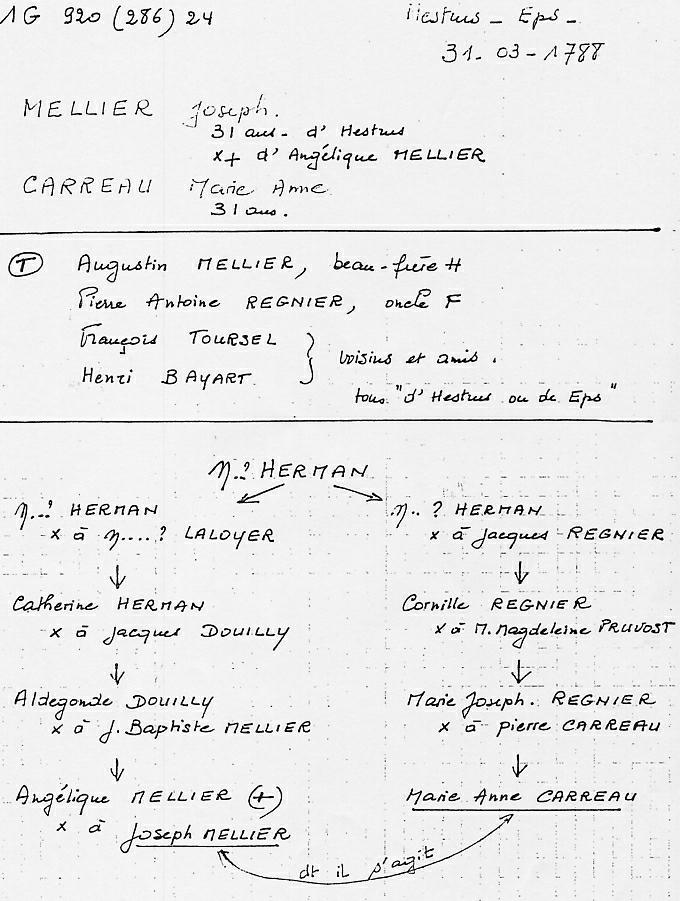 1G 920 (286) 24
Hestrus - Eps -
31-03-1788
MELLIER Joseph.
31 ans - d' Hestrus
x+ d' Angélique MELLIER
CARREAU Marie Anne
31 ans.
T Augustin MELLIER, beau-frère H
Pierre Antoine REGNIER, oncle F
François TOURSEL
Henri BAYART
voisins et amis.
tous "d' Hestrus ou de Eps"
N..? HERMAN
N..? HERMAN
x à N....? LALOYER
Catherine HERMAN
x à Jacques DOUILLY
Aldegonde DOUILLY
x à J. Baptiste MELLIER
Angélique MELLIER (+)
x à Joseph MELLIER
N..? HERMAN
x à Jacques REGNIER
Cornille REGNIER
x à M. Magdeleine PRUVOST
Marie Joseph. REGNIER
x à pierre CARREAU
Marie Anne CARREAU
dt il s'agit